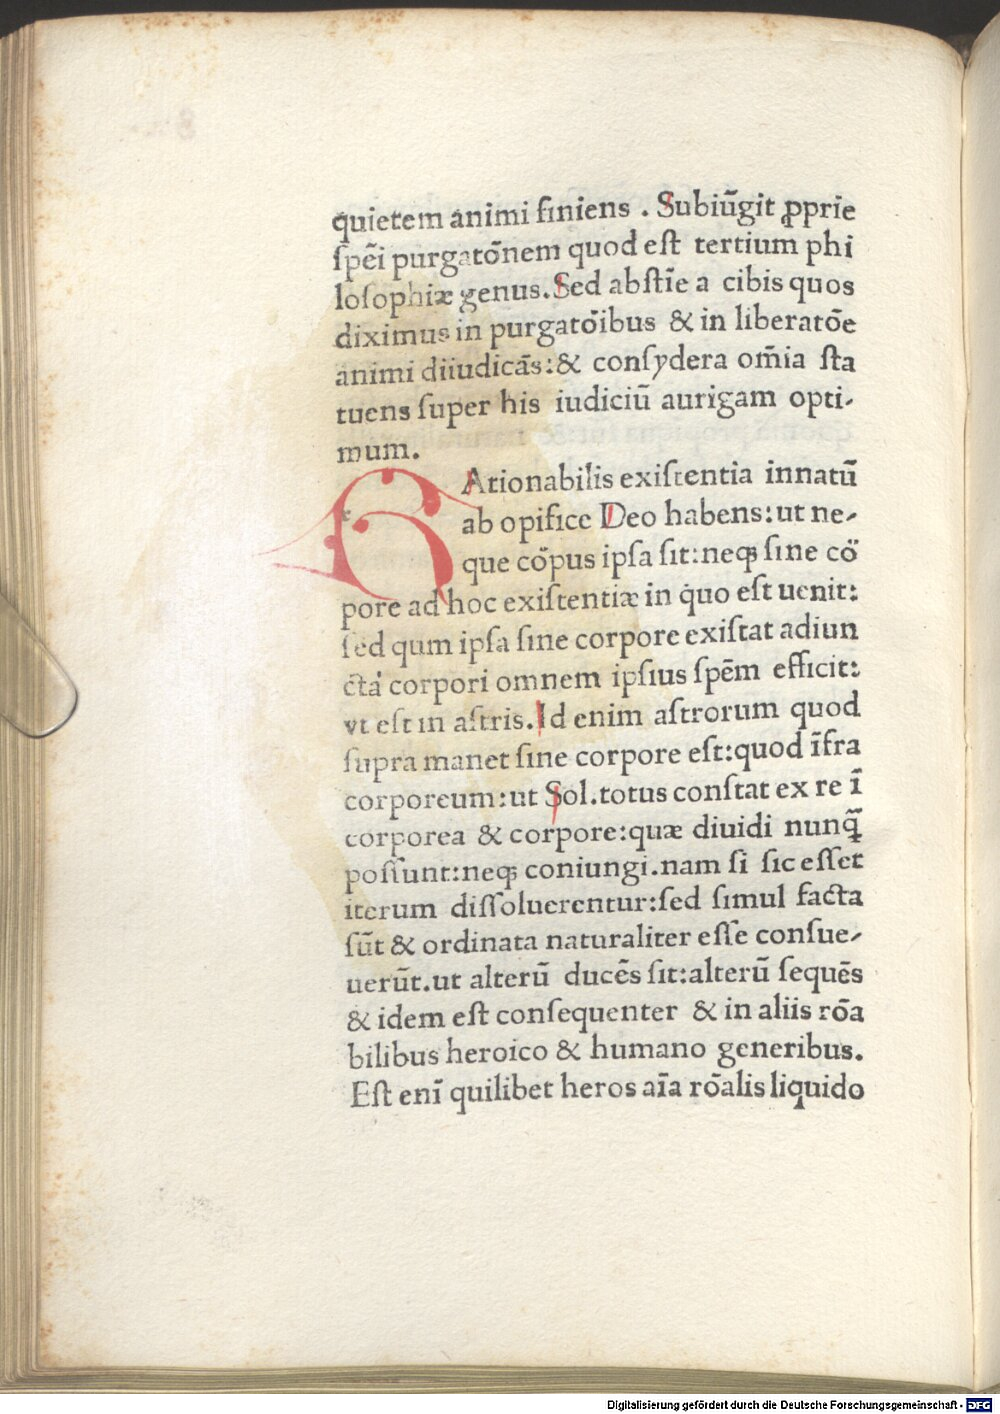 quietem animi finiens . Subiūgit ꝓprie
ſpēi purgatōnem quod eſt tertium phi
loſophiæ genus. Sed abſtīe a cibis quos
diximus in purgatōibus & in liberatōe
animi diiudicās: & conſydera om̄ia ſta
tuens ſuper his iudiciū aurigam opti-
mum.
RAtionabilis exiſtentia innatū
ab opifice Deo habens: ut ne-
que cōpus ipſa ſit: neqꝫ ſine cō
pore ad hoc exiſtentiæ in quo eſt uenit:
ſed qum ipſa ſine corpore exiſtat adiun
cta corpori omnem ipſius ſpēm efficit:
vt eſt in aſtris. Id enim aſtrorum quod
ſupra manet ſine corpore eſt: quod īfra
corporeum: ut Sol. totus conſtat ex re ī
corporea & corpore: quæ diuidi nunq̄
poſſunt: neqꝫ coniungi. nam ſi ſic eſſet
iterum diſſoluerentur: ſed ſimul facta
ſūt & ordinata naturaliter eſſe conſue-
uerūt. ut alterū ducēs ſit: alterū ſequēs
& idem eſt conſequenter & in aliis rōa
bilibus heroico & humano generibus.
Eſt enī quilibet heros aīa rōalis liquido
Digitalisierung gefördert durch die Deutsche Forschungsgemeinschaft - DFG